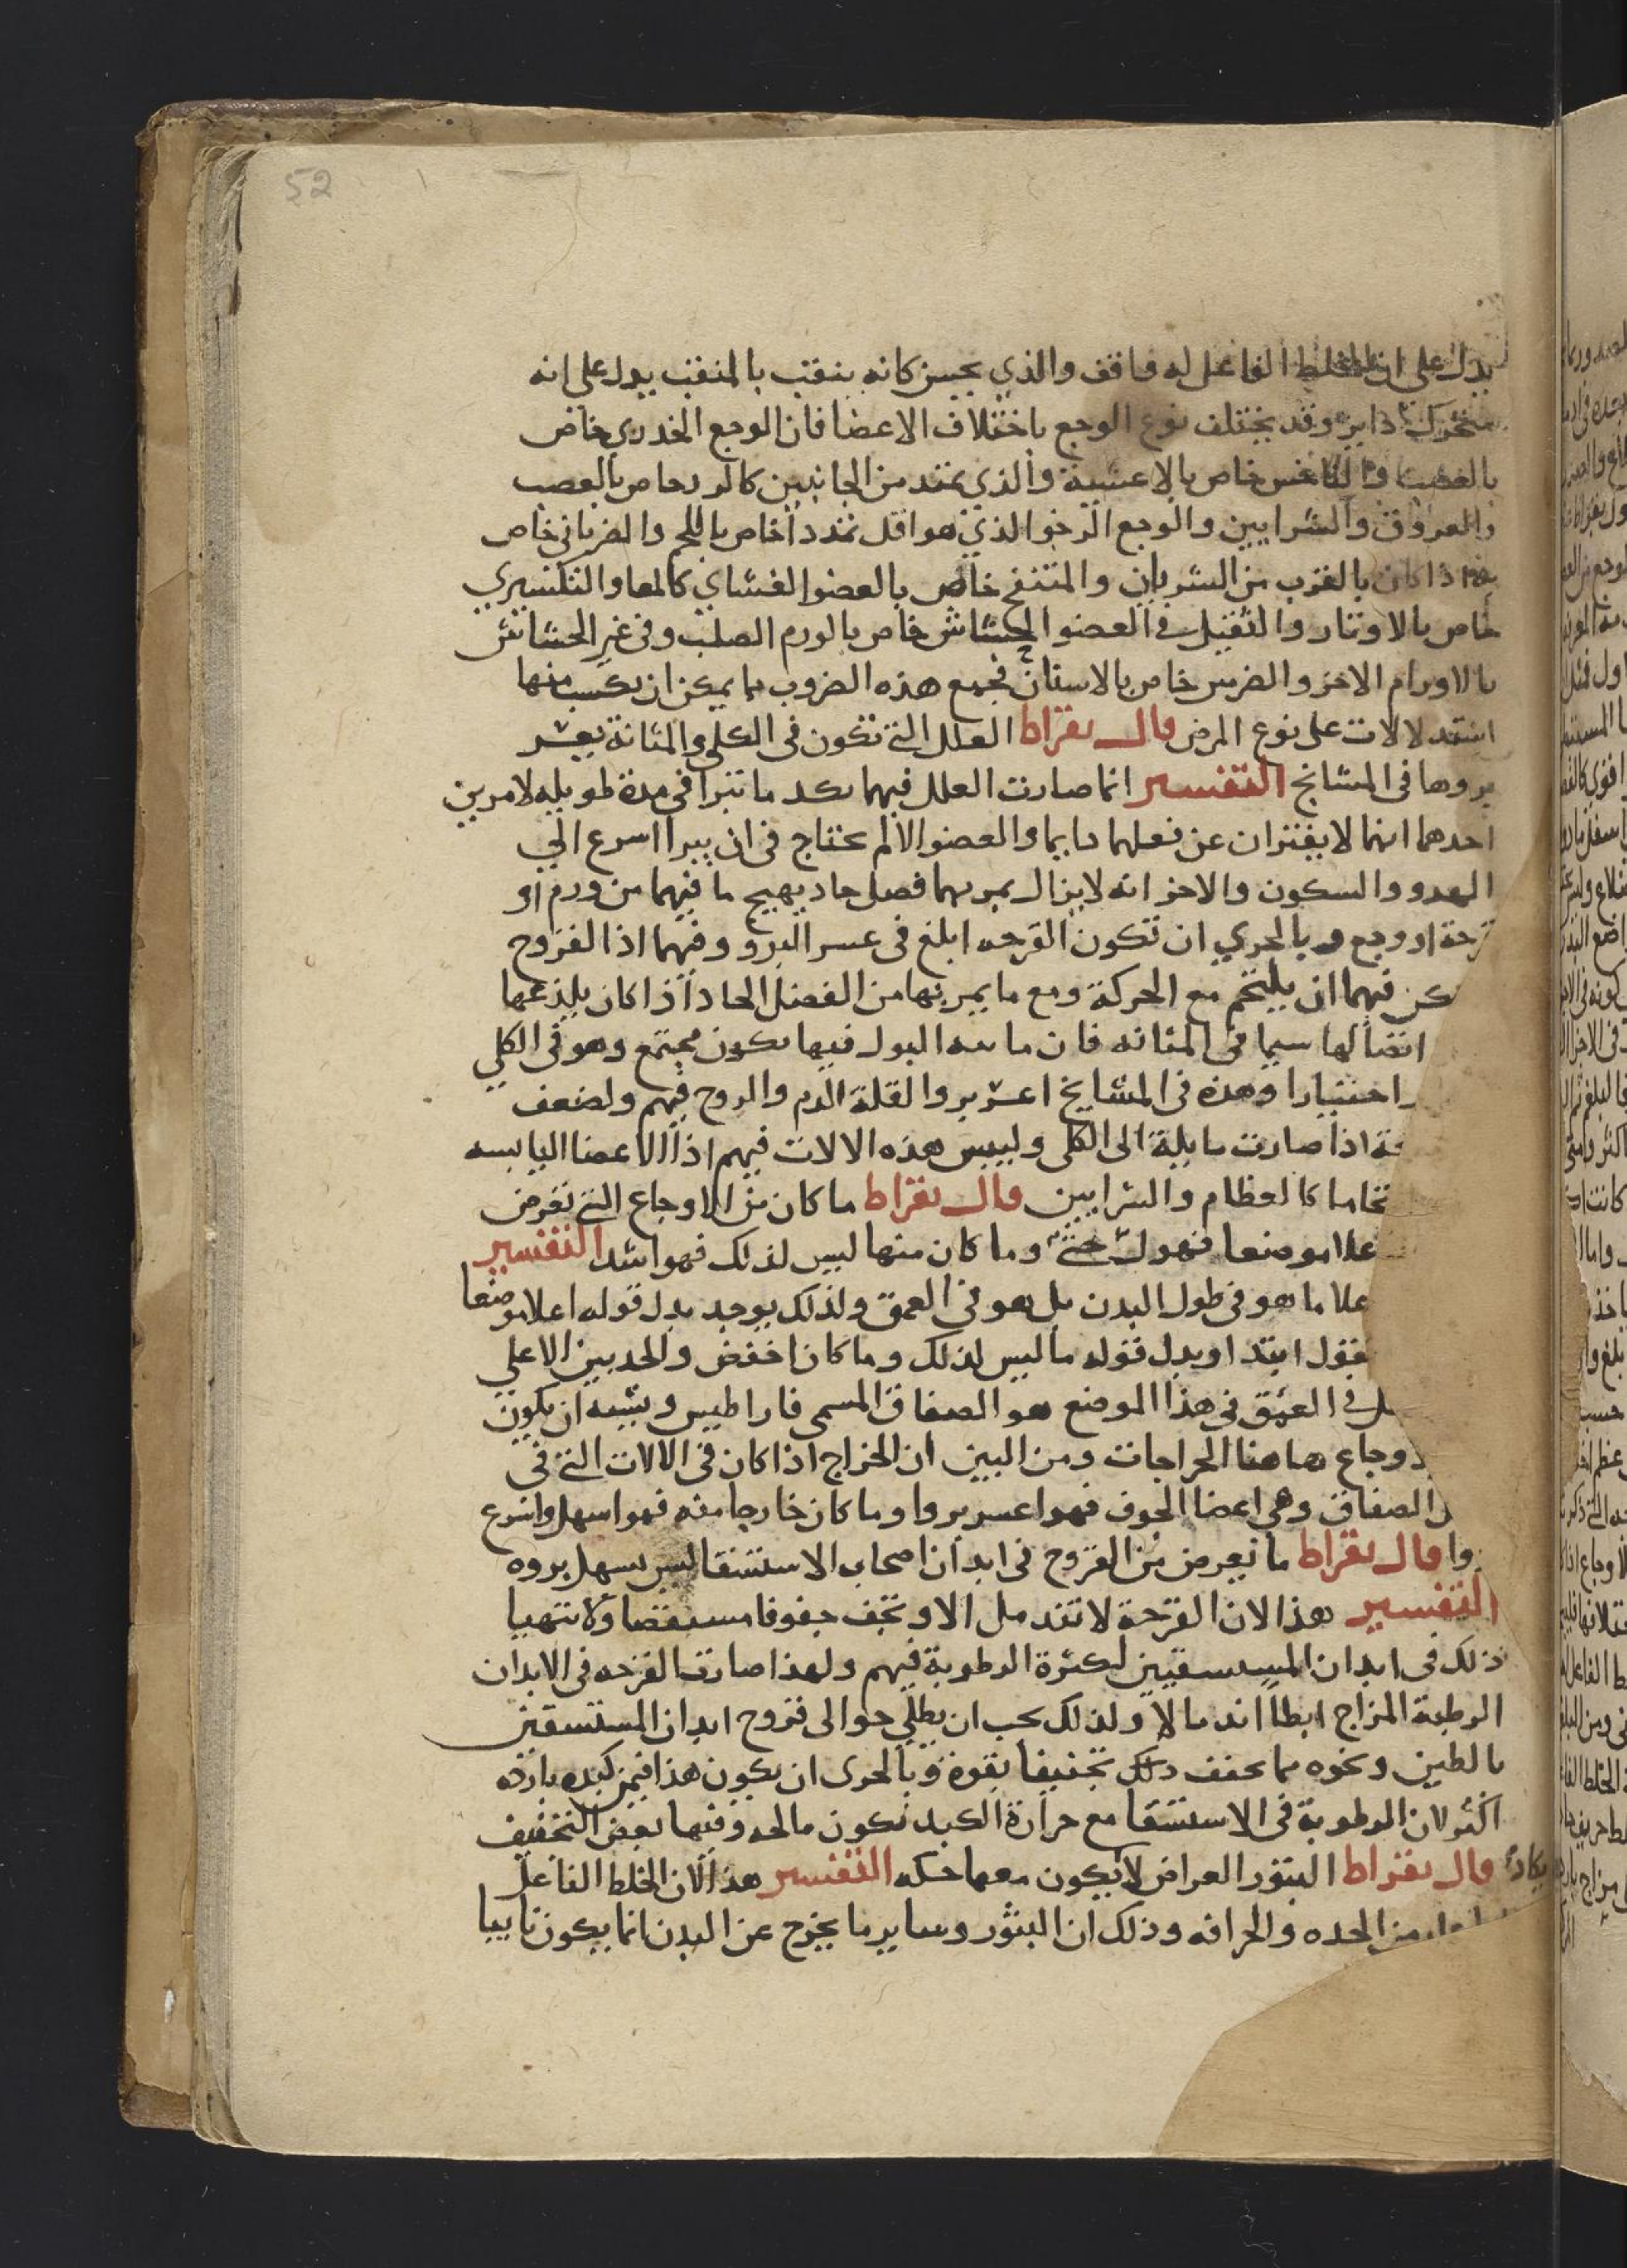 52
يدل على ان الخلط الفاعل له واقف والذي يحس كانه ينقب بالمنقب يدل على انه
متحرك داير وقد يختلف نوع الوجع باختلاف الاعضا فان الوجع الخدري خاص
بالعصب والناخس خاص بالاغشية والذي يمتد من الجانبين كالوتر خاص بالعصب
والعروق والشرايين والوجع الرخو الذي هو اقل تمددا خاص باللحم والضرباني خاص
اذا كان بالقرب من الشريان والمتنفخ خاص بالعضو الغشاي كالمعا والتكسيري
خاص بالاوتار والثقيل في العضو الحساس خاص بالورم الصلب وفي غير الحساس
بالاورام الاخر والضرس خاص بالاسنان فجميع هذه الضروب مما يمكن ان يكسب منها
استدلالات على نوع المرض قال بقراط العلل التي تكون في الكلى والمثانة يعسر
بروها في المشايخ التفسير انما صارت العلل فيهما بكد ما تبرا في مدة طويله لامرين
احدهما انهما لا يفتران عن فعلهما دايما والعضو الالم يحتاج في ان يبرا اسرع الي
الهدو والسكون والاخر انه لا يزال يمر بهما فصل حاد يهيج ما فيهما من ورم او
قرحة او وجع وبالحري ان تكون القرحه ابلغ في عسر البرو وفيهما اذ القروح
يكن فيهما ان يلتحم مع الحركة ومع ما يمر بها من الفضل الحاد اذ كان يلذعها
اتصالها سيما في المثانه فان ماييه البول فيها يكون مجتمع وهو في الكلي
اختيارا وهذه في المشايخ اعسر بروا لقلة الدم والروح فيهم ولضعف
اذا صارت مايلة الى الكلى وليبس هذه الالات فيهم اذ الاعضا اليابسه
تحامها كالعظام والشرايين قال بقراط ما كان من الاوجاع التي تعرض
اعلا موضعا فهو وما كان منها ليس لذلك فهو اشد التفسير
علا ما هو في طول البدن بل هو في العمق ولذلك يوجد بدل قوله اعلا موضعا
بقول ابتدا وبدل قوله ما ليس لذلك وما كان اخفض والحد بين الاعلي
في العمق في هذا الموضع هو الصفاق المسمى فاراطيس ويشبه ان يكون
وجاع هاهنا الخراجات ومن البين ان الخراج اذا كان في الالات التي في
الصفاق وهي اعضا الجوف فهو اعسر بروا وما كان خارجا منه فهو اسهل واسرع
بروا قال بقراط ما يعرض من القروح في ابدان اصحاب الاستسقا ليس يسهل بروه
التفسير هذا لان القرحة لا تندمل الا وتجف جفوفا مستقصا ولا يتهيا
ذلك في ابدان المستسقيين لكثرة الرطوبة فيهم ولهذا صارت القرحه في الابدان
الرطبة المزاج ابطا اندمالا ولذلك يجب ان يطلي حوالى قروح ابدان المستسقين
بالطين ونحوه مما يجفف ذلك تجفيفا بقوة وبالحرى ان يكون هذا فيمن كبده بارده
اكثر لان الرطوبة في الاستسقا مع حرارة الكبد تكون مالحه وفيها بعض التجفيف
قال بقراط البثور العراض لا يكاد يكون معها حكه التفسير هذا لان الخلط الفاعل
من الحده والحرافه وذلك ان البثور وساير ما يخرج عن البدن انما يكون نابيا